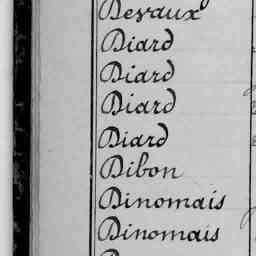 Devaux
Diard
Diard
Diard
Diard
Dibon
Dinomais
Dinomais